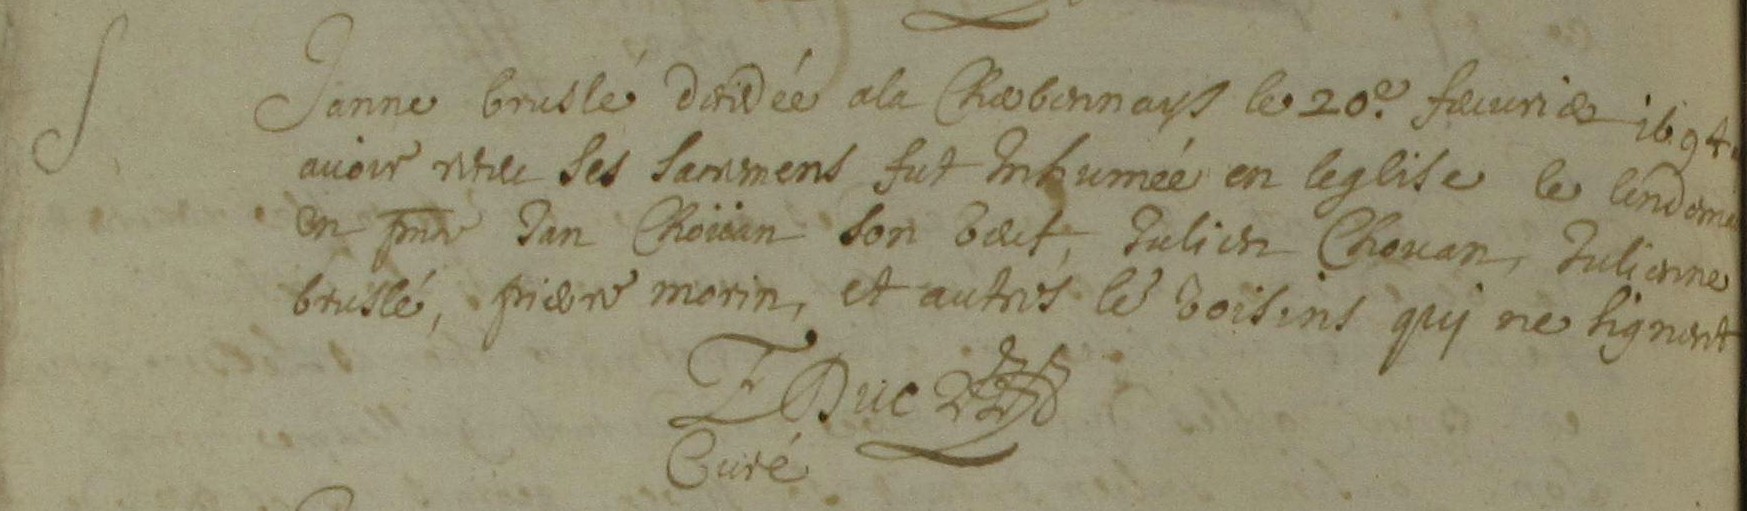 S
Janne bruslé decidée a la Charbonnays le 20e. feuurier 1694
auoir receu ses sacremens fut Inhumée en leglise le lendema
en pnce Jan Choüan son veuf, Julien Chouan, Julienne
bruslé, pierre morin, et autres lé voisins quj ne signent
F Duc
Curé